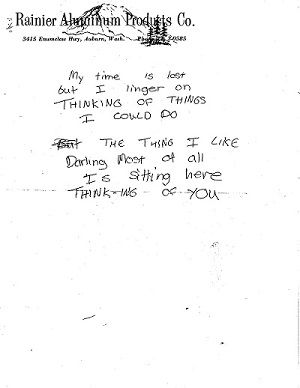 Rainier Aluminum Products Co.
3415 Enumclaw Hwy, Auburn, Wash.
My time is lost
but I linger on
THINKING OF THINGS
I COULD DO
But THE THING I LIKE
Darling Most of all
Is sitting here
THINK-ING OF YOU